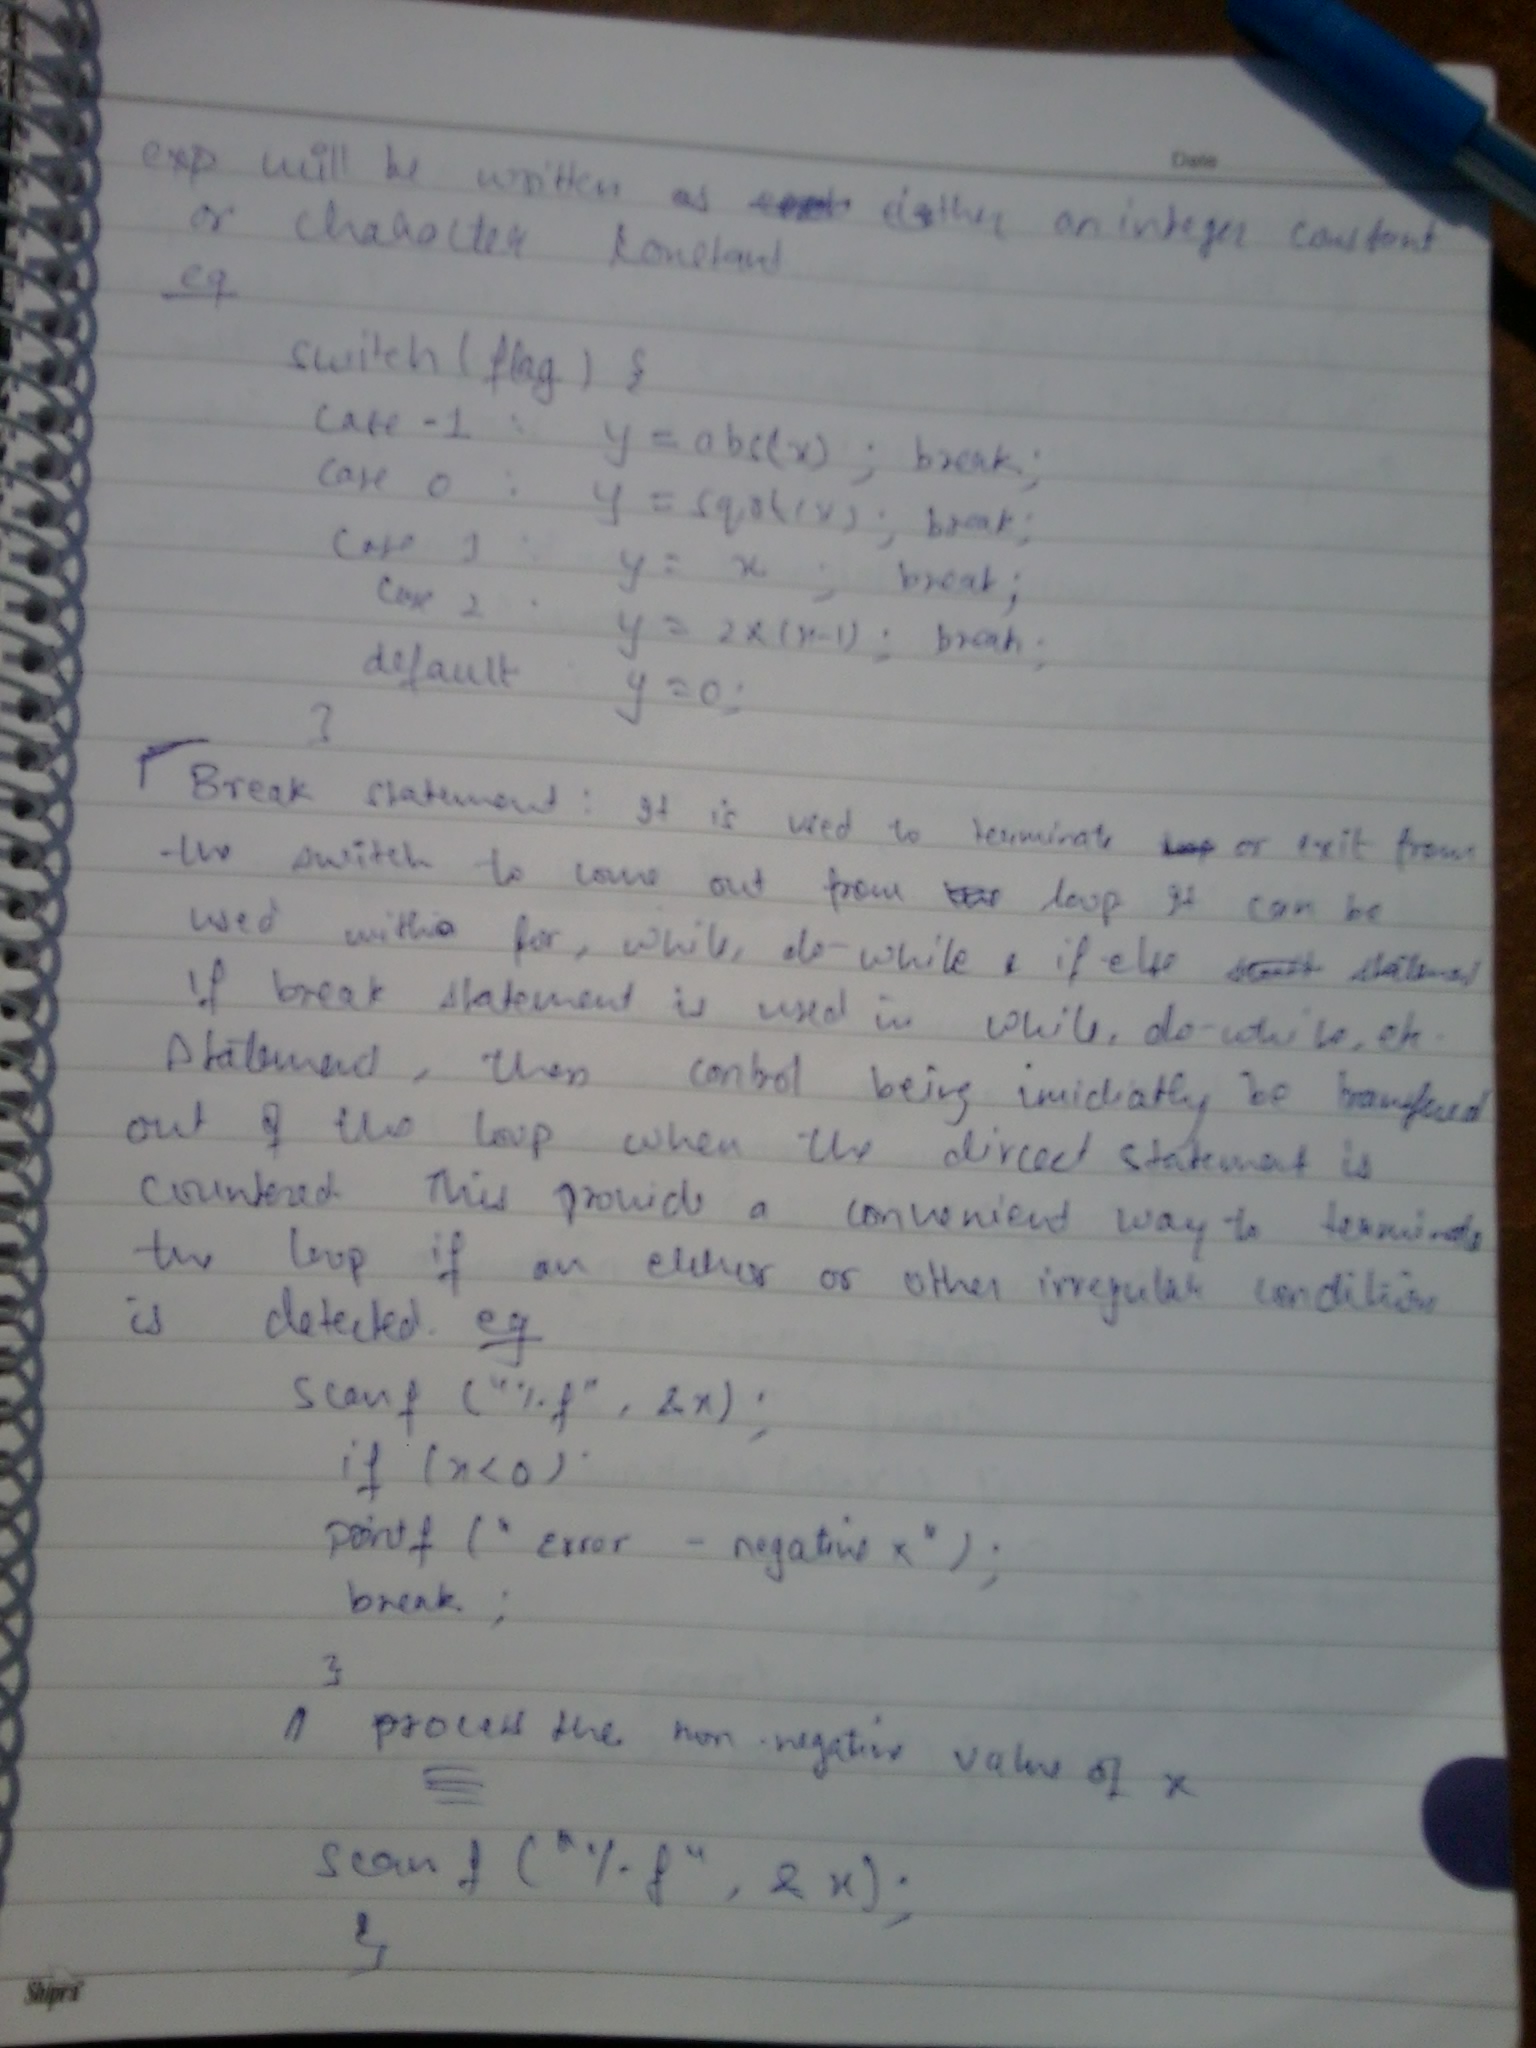 Date
exp will be written as either an integer constant
or character constant
eg
switch (flag) {
case -1 : y = abs(x) ; break;
case 0 : y = sqrt(x) ; break;
case 1 : y = x ; break;
case 2 : y = 2*(x-1) ; break;
default y = 0;
}
Break statement : It is used to terminate or exit from
the switch to come out from loop It can be
used within for, while, do-while & if else statement
If break statement is used in while, do-while, etc.
statement, then control being imidiatly be transfered
out of the loop when the statement is
countered This provide a convenient way to terminate
the loop if an either or other irregular condition
is detected. eg
scanf ("%f", &x);
if (x<0)
printf (" error - negative x");
break ;
}
process the non-negative value of x
scanf ("%f", &x);
}
Shipra